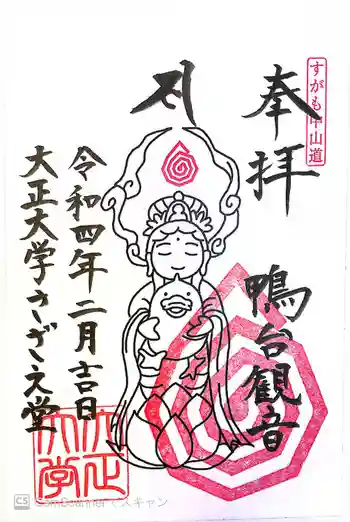 すがも中山道
奉拝
鴨台観音
令和四年二月吉日
大正大学さざえ堂
大正大学
CS CamScanner でスキャン